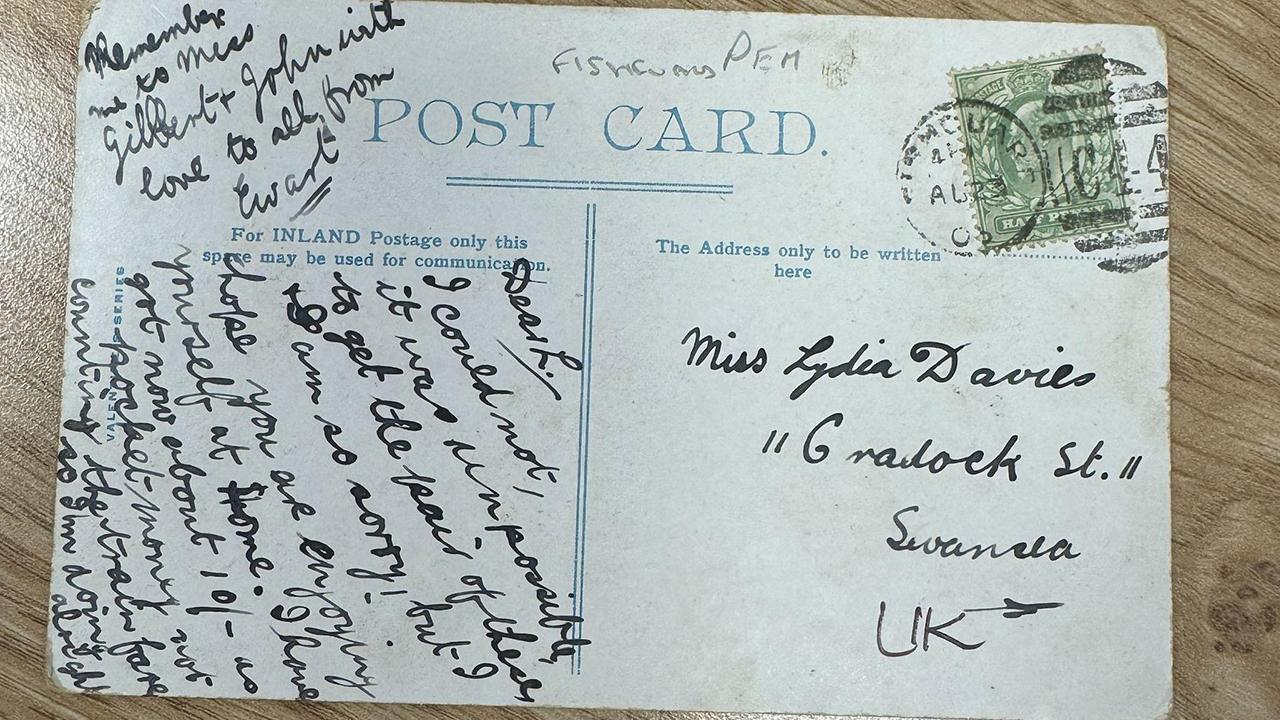 Remember
me to Miss
Gilbert + John with
love to all, from
Ewart
PEM
POST CARD.
For INLAND Postage only this
space may be used for communication.
The Address only to be written
here
VALENTINES SERIES
Dear L.
I could not,
it was unpossible,
to get the pair of these
& I am so sorry! but I
hope you are enjoying
yourself at home. I have
got now about 10/- as
pocket-money not
counting the train fare
so I'm doing alright
Miss Lydia Davies
"Cradock St."
Swansea
UK
POSTAGE
HALF
AU